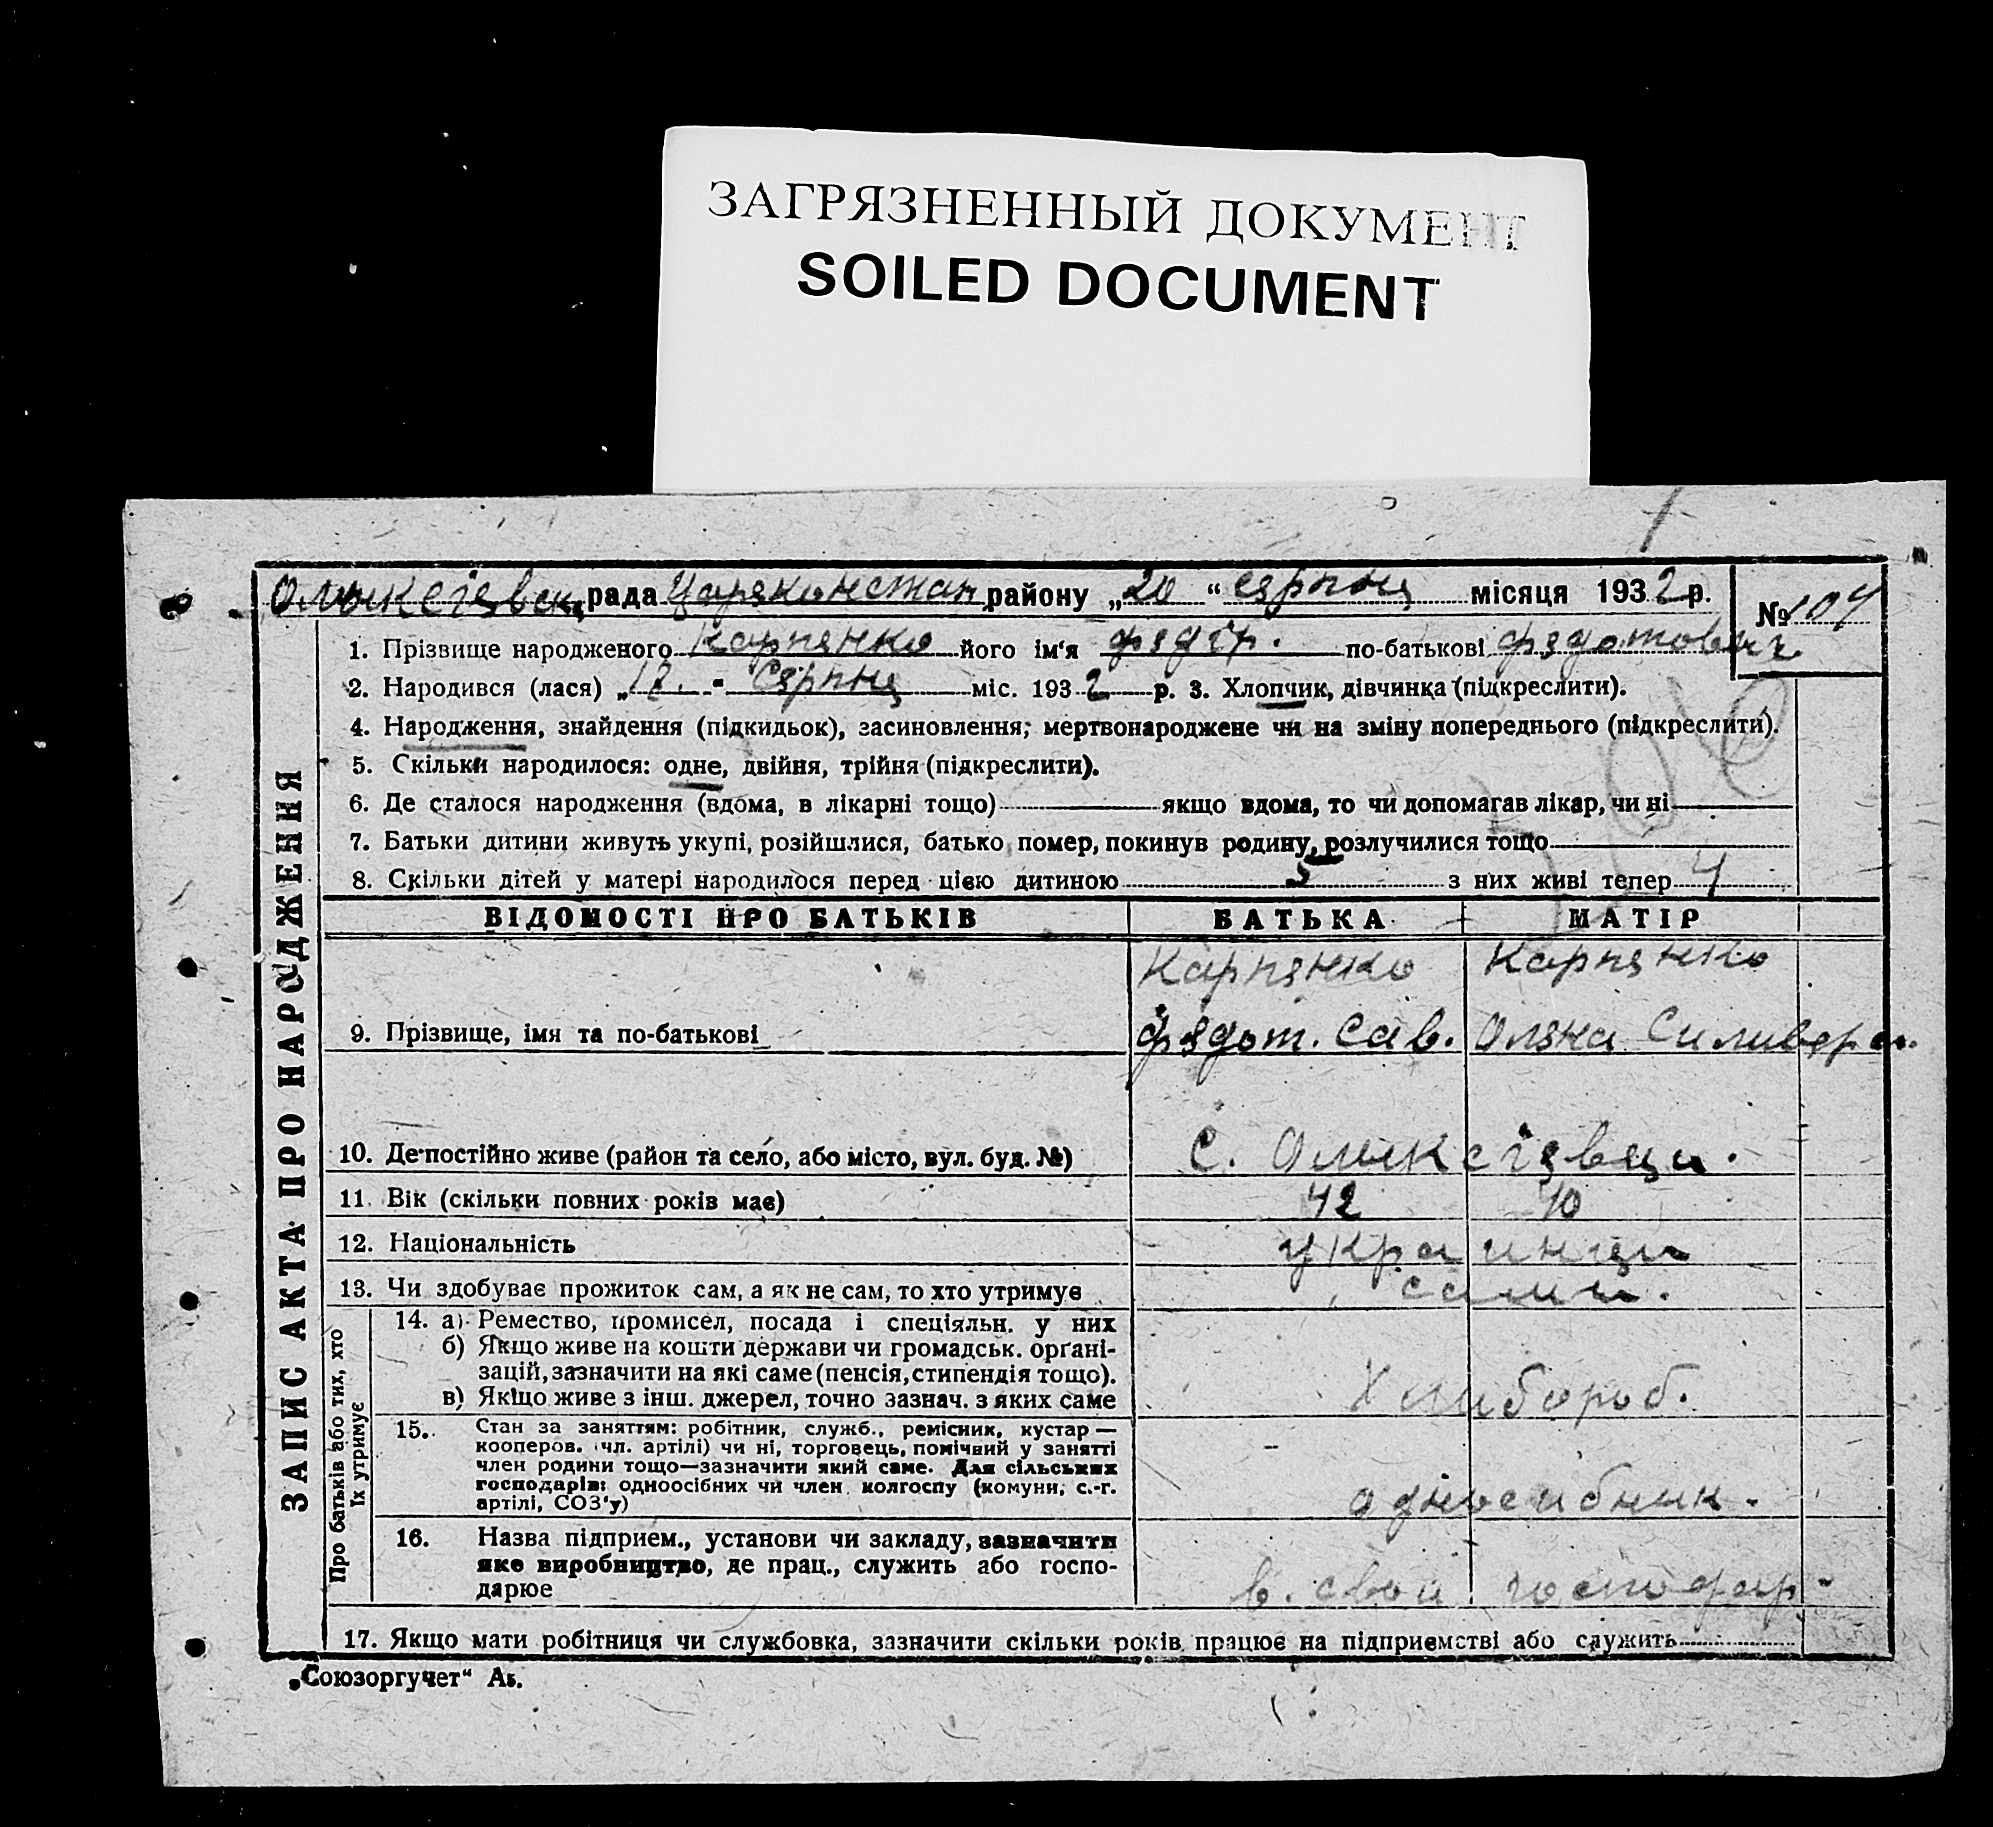 ЗАГРЯЗНЕННЫЙ ДОКУМЕНТ
SOILED DOCUMENT
рада район​у „20“ серпня місяця 1932 р. №104
1. Прізвище народженого Карпенко його ім‘я по-батькові Федотович
2. Народився (лася) „ “ Серпня міс. 1932 р. 3. Хлопчик, дівчинка (підкреслити).
4. Народження, знайдення (підкидьок), засиновлення; мертвонароджене чи на зміну попереднього (підкреслити).
5. Скільки народилося: одне, двійня, трійня (підкреслити).
6. Де сталося народження (вдома, в лікарні тощо) якщо вдома, то чи допомагав лікар, чи ні
7. Батьки дитини живуть укупі, розійшлися, батько помер, покинув родину, розлучилися тощо
8. Скільки дітей у матері народилося перед цією дитиною 5 з них живі тепер 4
ЗАПИС АКТА ПРО НАРОДЖЕННЯ
ВІДОМОСТІ ПРО БАТЬКІВ БАТЬКА МАТІР
Карпенко Карпенко
9. Прізвище, імя та по-батькові Федот. Сав. Олена
10. Де постійно живе (район та село, або місто, вул. буд. №) с.
11. Вік (скільки повних років має) 42 40
12. Національність украинци
13. Чи здобуває прожиток сам, а як не сам, то хто утримує сами.
Про батьків або тих, хто
їх утримує
14. а) Ремество, промисел, посада і спеціяльн. у них
б) Якщо живе на кошти держави чи громадськ. орґані-
зацій, зазначити на які саме (пенсія, стипендія тощо).
в) Якщо живе з інш. джерел, точно зазнач. з яких саме
Хлибороб.
15. Стан за заняттям: робітник, служб., ремісник, кустар —
кооперов. чл. артілі) чи ні, торговець, помічний у занятті
член родини тощо—зазначити який саме. Для сільських
господарів: одноосібних чи член колгоспу (комуни, с.-г.
артілі, СОЗ‘у)
односибник.
16. Назва підприєм., установи чи закладу, зазначити
яке виробництво, де прац., служить або госпо-
дарює
в. свои господар.
17. Якщо мати робітниця чи службовка, зазначити скільки років працює на підприємстві або служить
„Союзоргучет“